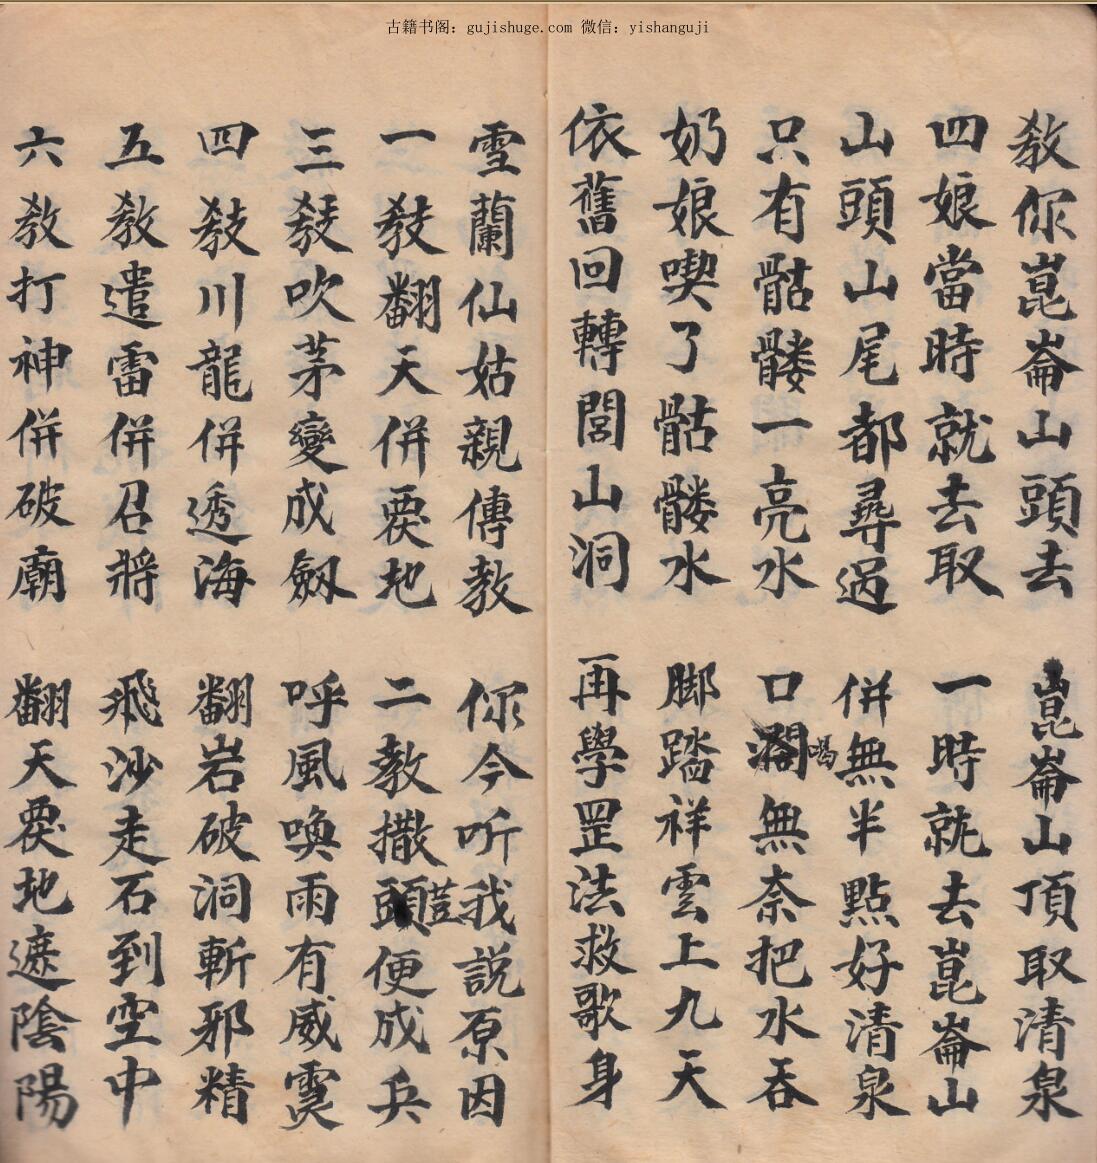 古籍书阁：gujishuge.com 微信：yishanguji
教你崑崙山頭去 崑崙山頂取清泉
四娘當時就去取 一時就去崑崙山
山頭山尾都尋过 併無半點好清泉
只有骷髏一亮水 口渴無奈把水吞
喝
奶娘喫了骷髏水 脚踏祥雲上九天
依舊回轉閭山洞 再學罡法救歌身
雪蘭仙姑親傳教 你今听我説原因
一教翻天併 地 二教撒頭便成兵
荳
三教吹茅變成劔 呼風喚雨有威
四教川龍併透海 翻岩破洞斬邪精
五教遣雷併召將 飛沙走石到空中
六教打神併破廟 翻天 地遮陰陽